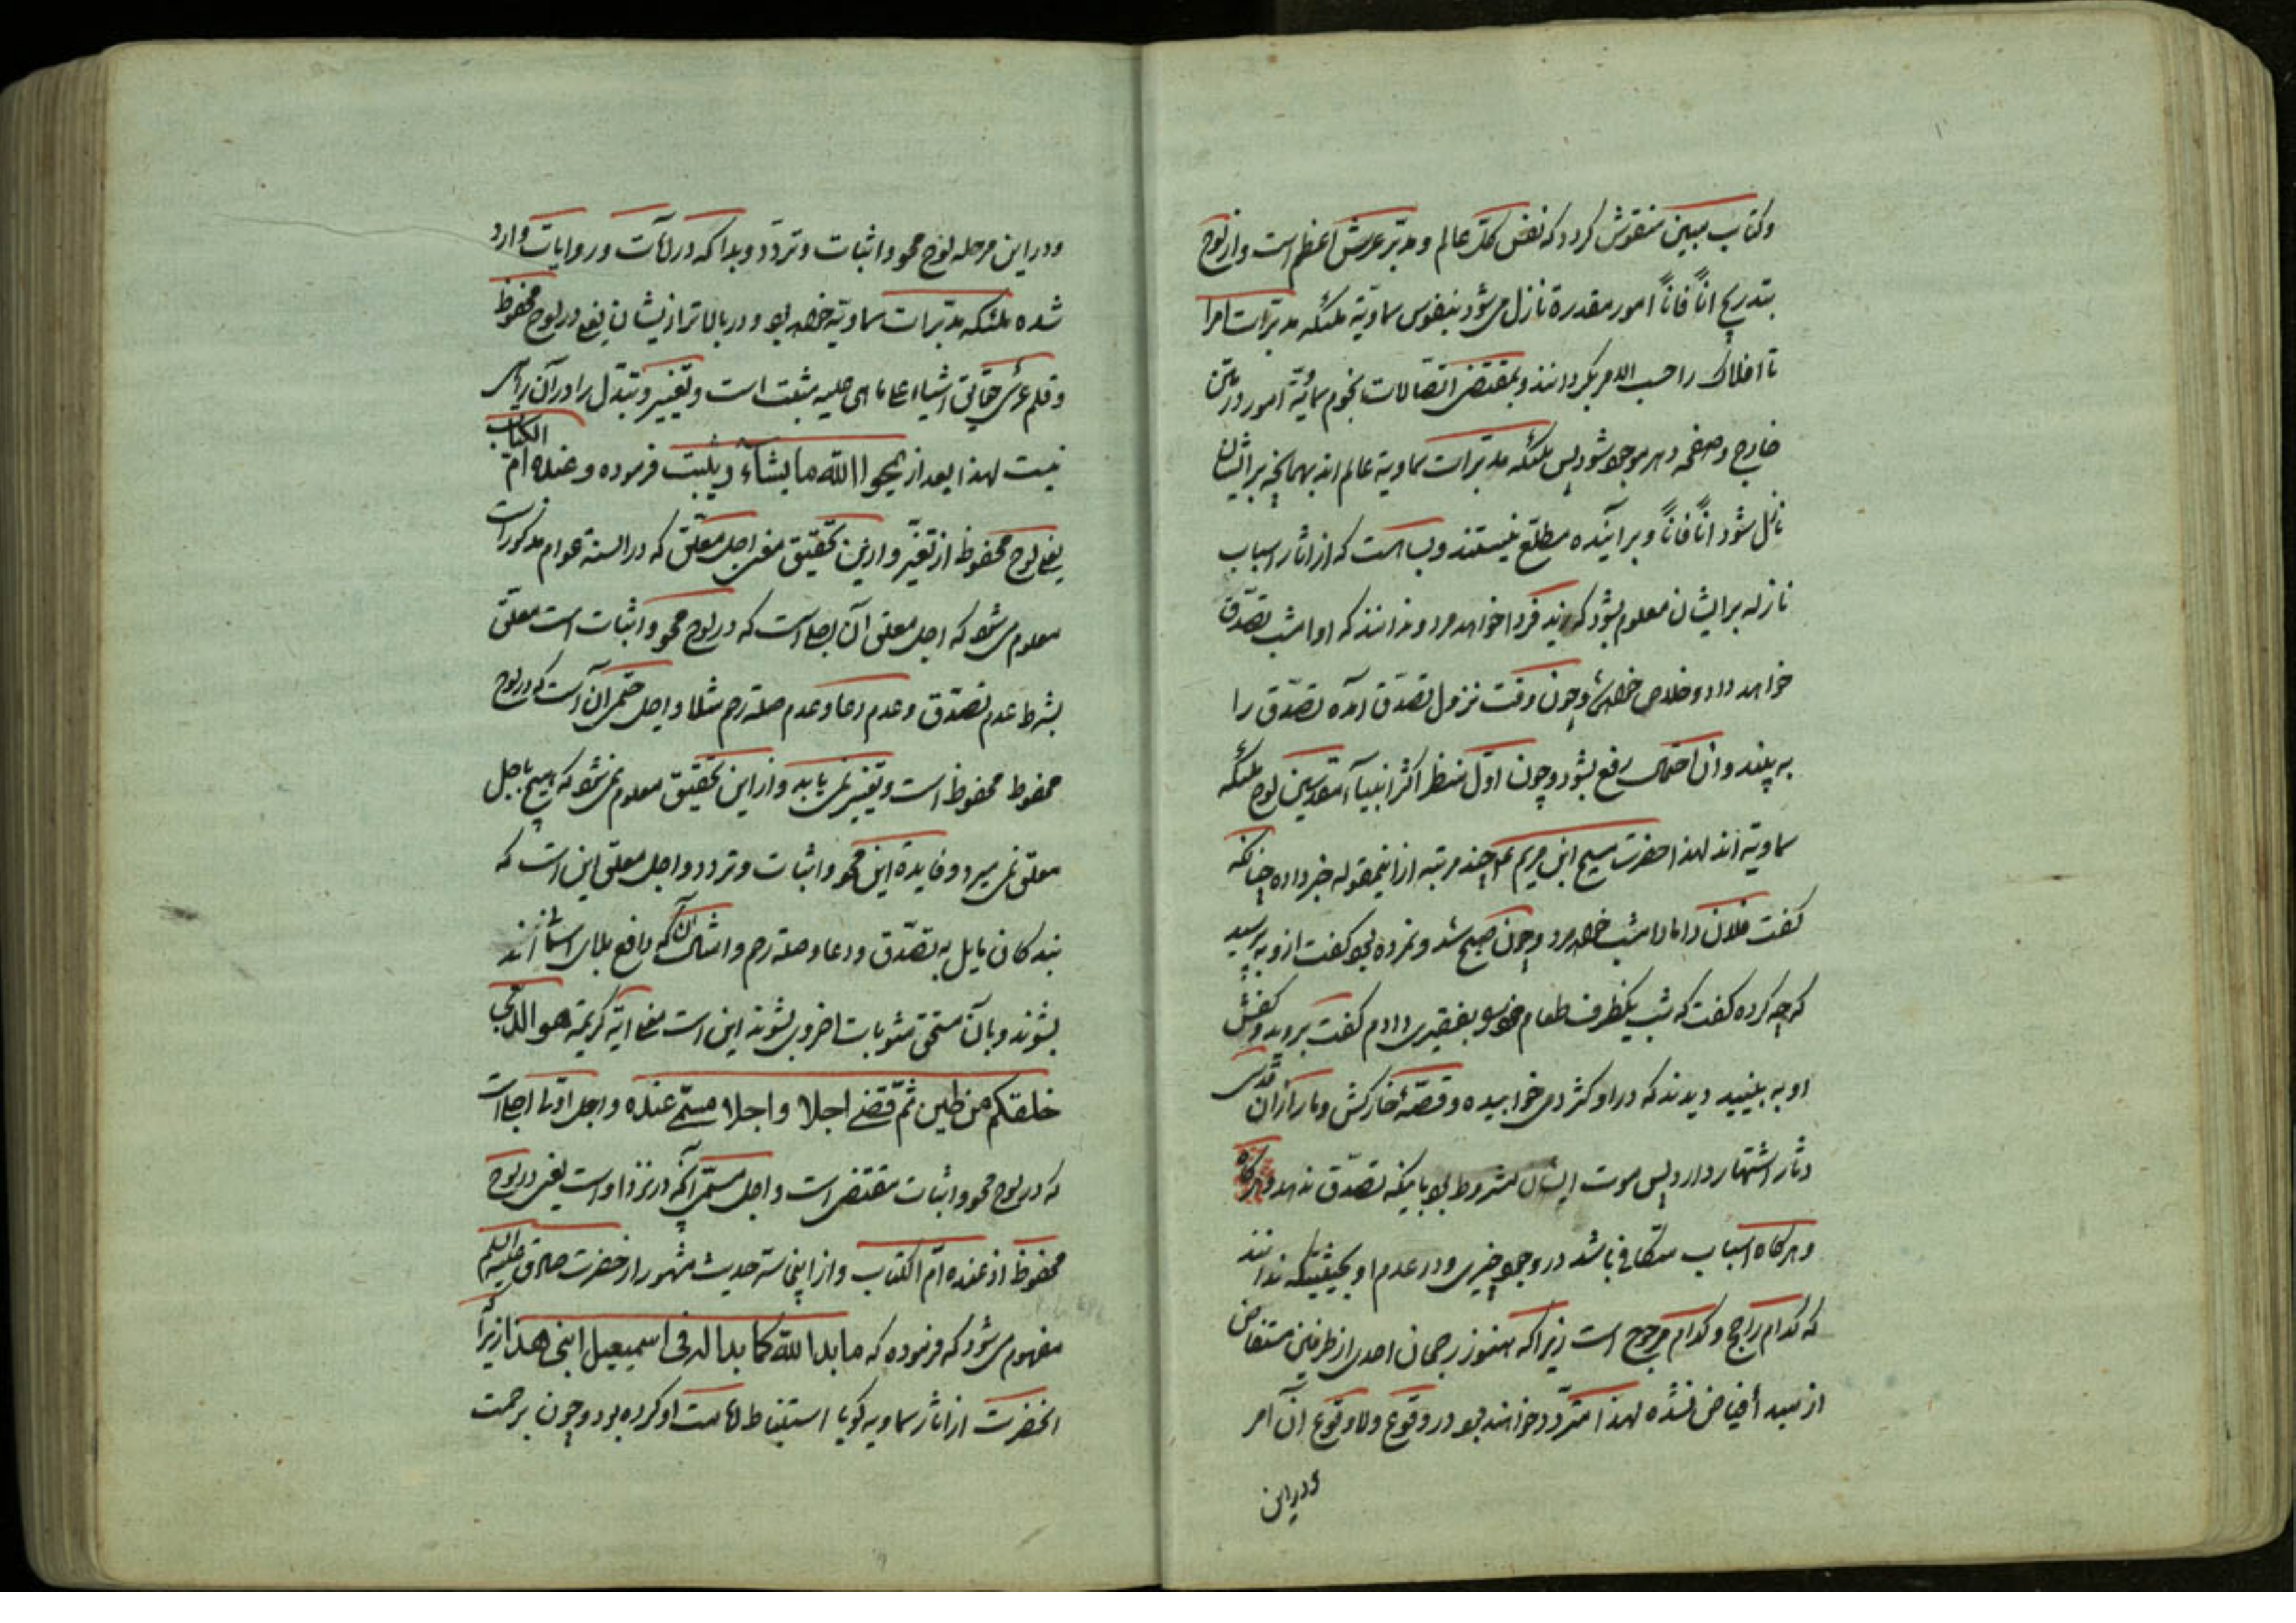 وکتاب مبین منقوش کردد که نفس کلّ عالم و مدبّر عرش اعظم است و از لوح
بتدریج اناً فاناً امور مقدره نازل می‌شود بنفوس سماویّه ملئکه مدبّرات امرا
تا افلاک را حسب الامر بکردانند و بمقتضی اتصالات نجوم سمائیّه امور در متن
خارج و صفحه دهر موجود شود پس ملئکه مدبّرات سماویة عالم اند بهمانچه بر ایشان
نازل شود اناً فاناً و بر آینده مطلّع نیستند و بسا هست که از اثار اسباب
نازله بر ایشان معلوم بشود که زید فردا خواهد مرد و ندانند که او امشب تصدّق
خواهد داد و خلاص خواهد شد و چون وقت نزول تصدّق آمده تصدّق را
به بینند و ان احتمال رفع بشود و چون اوّل منظر اکثر انبیآء مقدسین لوح ملئکه
سماویّه اند لهذا حضرت مسیح ابن مریم ع چند مرتبه از اینمقوله خبر داده چنانکه
کفت فلان داماد امشب خواهد مرد و چون صبح شد و نمرده بود کفت ازو به پرسید
که چه کرده کفت که شب یکظرف طعام خود بفقیری دادم کفت بروید و کفش
او به بینید دیدند که در او کژدمی خوابیده و قصّه خارکش و مار از ان قدسی
دثار اشتهار دارد پس موت ایشان مشروط بود باینکه تصدّق ندهد
و هرکاه اسباب متکافی باشد در وجود چیزی و در عدم او بحیثیتیکه ندانند
که کدام راجح و کدام مرجوح است زیرا که هنوز رجحان احدی از طرفین مستفاض
از مبدء فیاض نشده لهذا متردّد خواهند بود در وقوع و لا وقوع آن امر
و در این
و در این مرحله لوح محو و اثبات و تردّد و بدا که در آیات و روایات وارد
شده ملئکه مدبّرات سماویّه خواهد بود و در بالاتر از ایشان یعنی در لوح محفوظ
و قلم عرشی حقائق اشیاء علی ما هی علیه مثبت است و تغییر و تبدّل را در آن راهی
نیست لهذا بعد از یمحوا الله ما یشاء و یثبت فرموده و عنده امّ الکتاب
یعنی لوح محفوظ از تغیّر و از این تحقیق معنی اجل معلّق که در السنه عوام مذکور است
معلوم می‌شود که اجل معلق آن اجلی است که در لوح محو و اثبات است معلّق
بشرط عدم تصدّق و عدم دعا و عدم صله رحم مثلا و اجل حتمی آن است که در لوح
محفوظ محفوظ است و تغییر نمی‌یابد و از این تحقیق معلوم می‌شود که هیچ باجل
معلّق نمی‌میرد و فایده این محو و اثبات و تردد و اجل معلّق این است که
بندکان مایل به تصدّق و دعا و صله رحم و امثال آن که دافع بلای اند
بشوند و بآن مستحق مثوبات اخروی بشوند این است معنی ایه کریمه هو الذی
خلقکم من طین ثمّ قضی اجلا و اجلا مسمّی عنده و اجل اوّل اجلی است
که در لوح محو و اثبات مقتضی است و اجل مسمّی آنکه در نزد او است یعنی در لوح
محفوظ اذ عنده امّ الکتاب و از اینجا سرّ حدیث مشهور از حضرت صادق علیه السلم
مفهوم می‌شود که فرموده که ما بدا لله کما بدا له فی اسمعیل ابنی هذا زیرا
انحضرت از اثار سماویه کویا استنباط امامت او کرده بود و چون برحمت